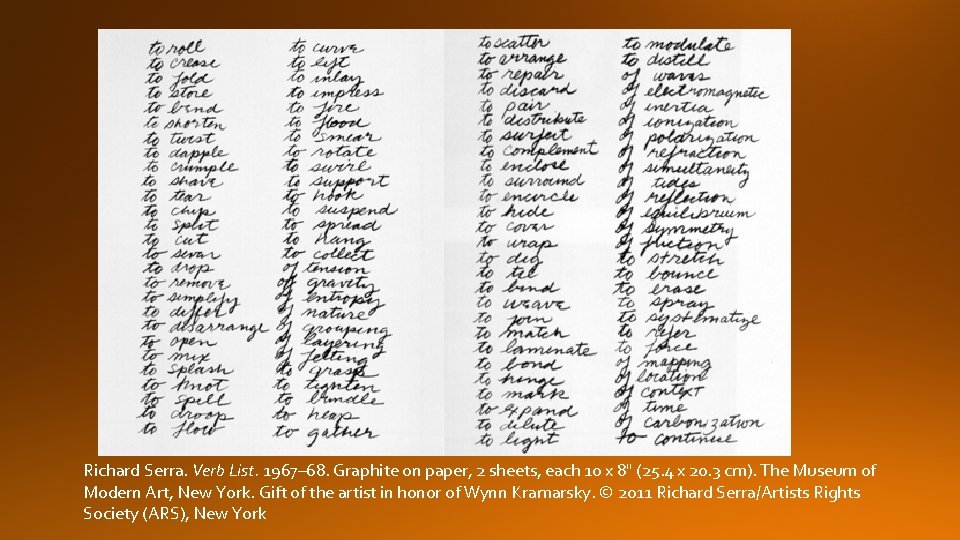 to roll
to crease
to fold
to store
to bend
to shorten
to twist
to dapple
to crumple
to shave
to tear
to chip
to split
to cut
to sever
to drop
to remove
to simplify
to differ
to disarrange
to open
to mix
to splash
to knot
to spill
to droop
to flow
to curve
to lift
to inlay
to impress
to fire
to flood
to smear
to rotate
to swirl
to support
to hook
to suspend
to spread
to hang
to collect
of tension
of gravity
of entropy
of nature
of grouping
of layering
of felting
to grasp
to tighten
to bundle
to heap
to gather
to scatter
to arrange
to repair
to discard
to pair
to distribute
to surfeit
to complement
to enclose
to surround
to encircle
to hide
to cover
to wrap
to dig
to tie
to bind
to weave
to join
to match
to laminate
to bond
to hinge
to mark
to expand
to dilute
to light
to modulate
to distill
of waves
of electromagnetic
of inertia
of ionization
of polarization
of refraction
of simultaneity
of tides
of reflection
of equilibrium
of symmetry
of friction
to stretch
to bounce
to erase
to spray
to systematize
to refer
to force
of mapping
of location
of context
of time
of carbonization
to continue
Richard Serra. Verb List. 1967–68. Graphite on paper, 2 sheets, each 10 x 8" (25.4 x 20.3 cm). The Museum of
Modern Art, New York. Gift of the artist in honor of Wynn Kramarsky. © 2011 Richard Serra/Artists Rights
Society (ARS), New York